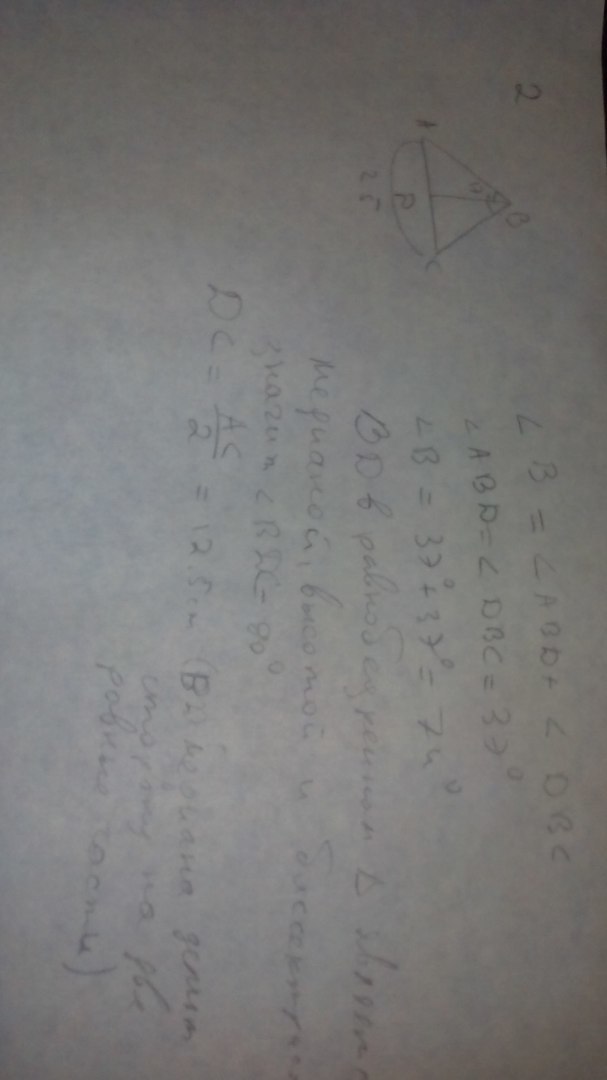 2
A
B
C
D
25
∠B = ∠ABD + ∠DBC
∠ABD = ∠DBC = 37°
∠B = 37° + 37° = 74°
BD в равнобедренном Δ являетс
медианой, высотой и биссектрисо
значит ∠BDC = 90°
DC = AC/2 = 12.5 (BD медиана делит
сторону на две
равные части)